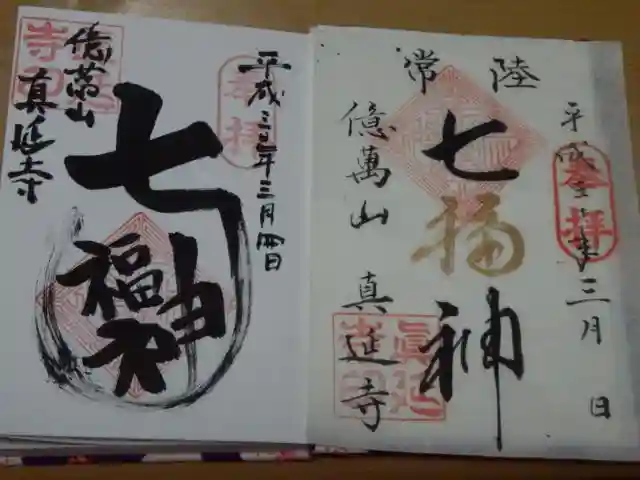 奉拝
平成
年三月 日
常陸
七福神
億萬山 真延寺
奉拝
平成
年三月四日
七福神
億萬山
真延寺